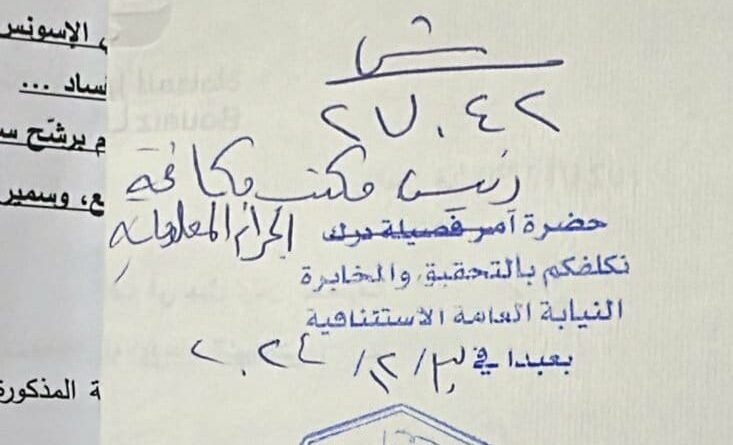 ش
٢٧٠٤٢
رئيس مكتب مكافحة
حضرة آمر فصيلة درك الجرائم المعلوماتية
نكلفكم بالتحقيق والمخابرة
النيابة العامة الاستئنافية
بعبدا في ٣/١٢/٢٠٢٤
الإسونس
ساد ...
م يرشّح س
ع، وسمير
ة المذكورة